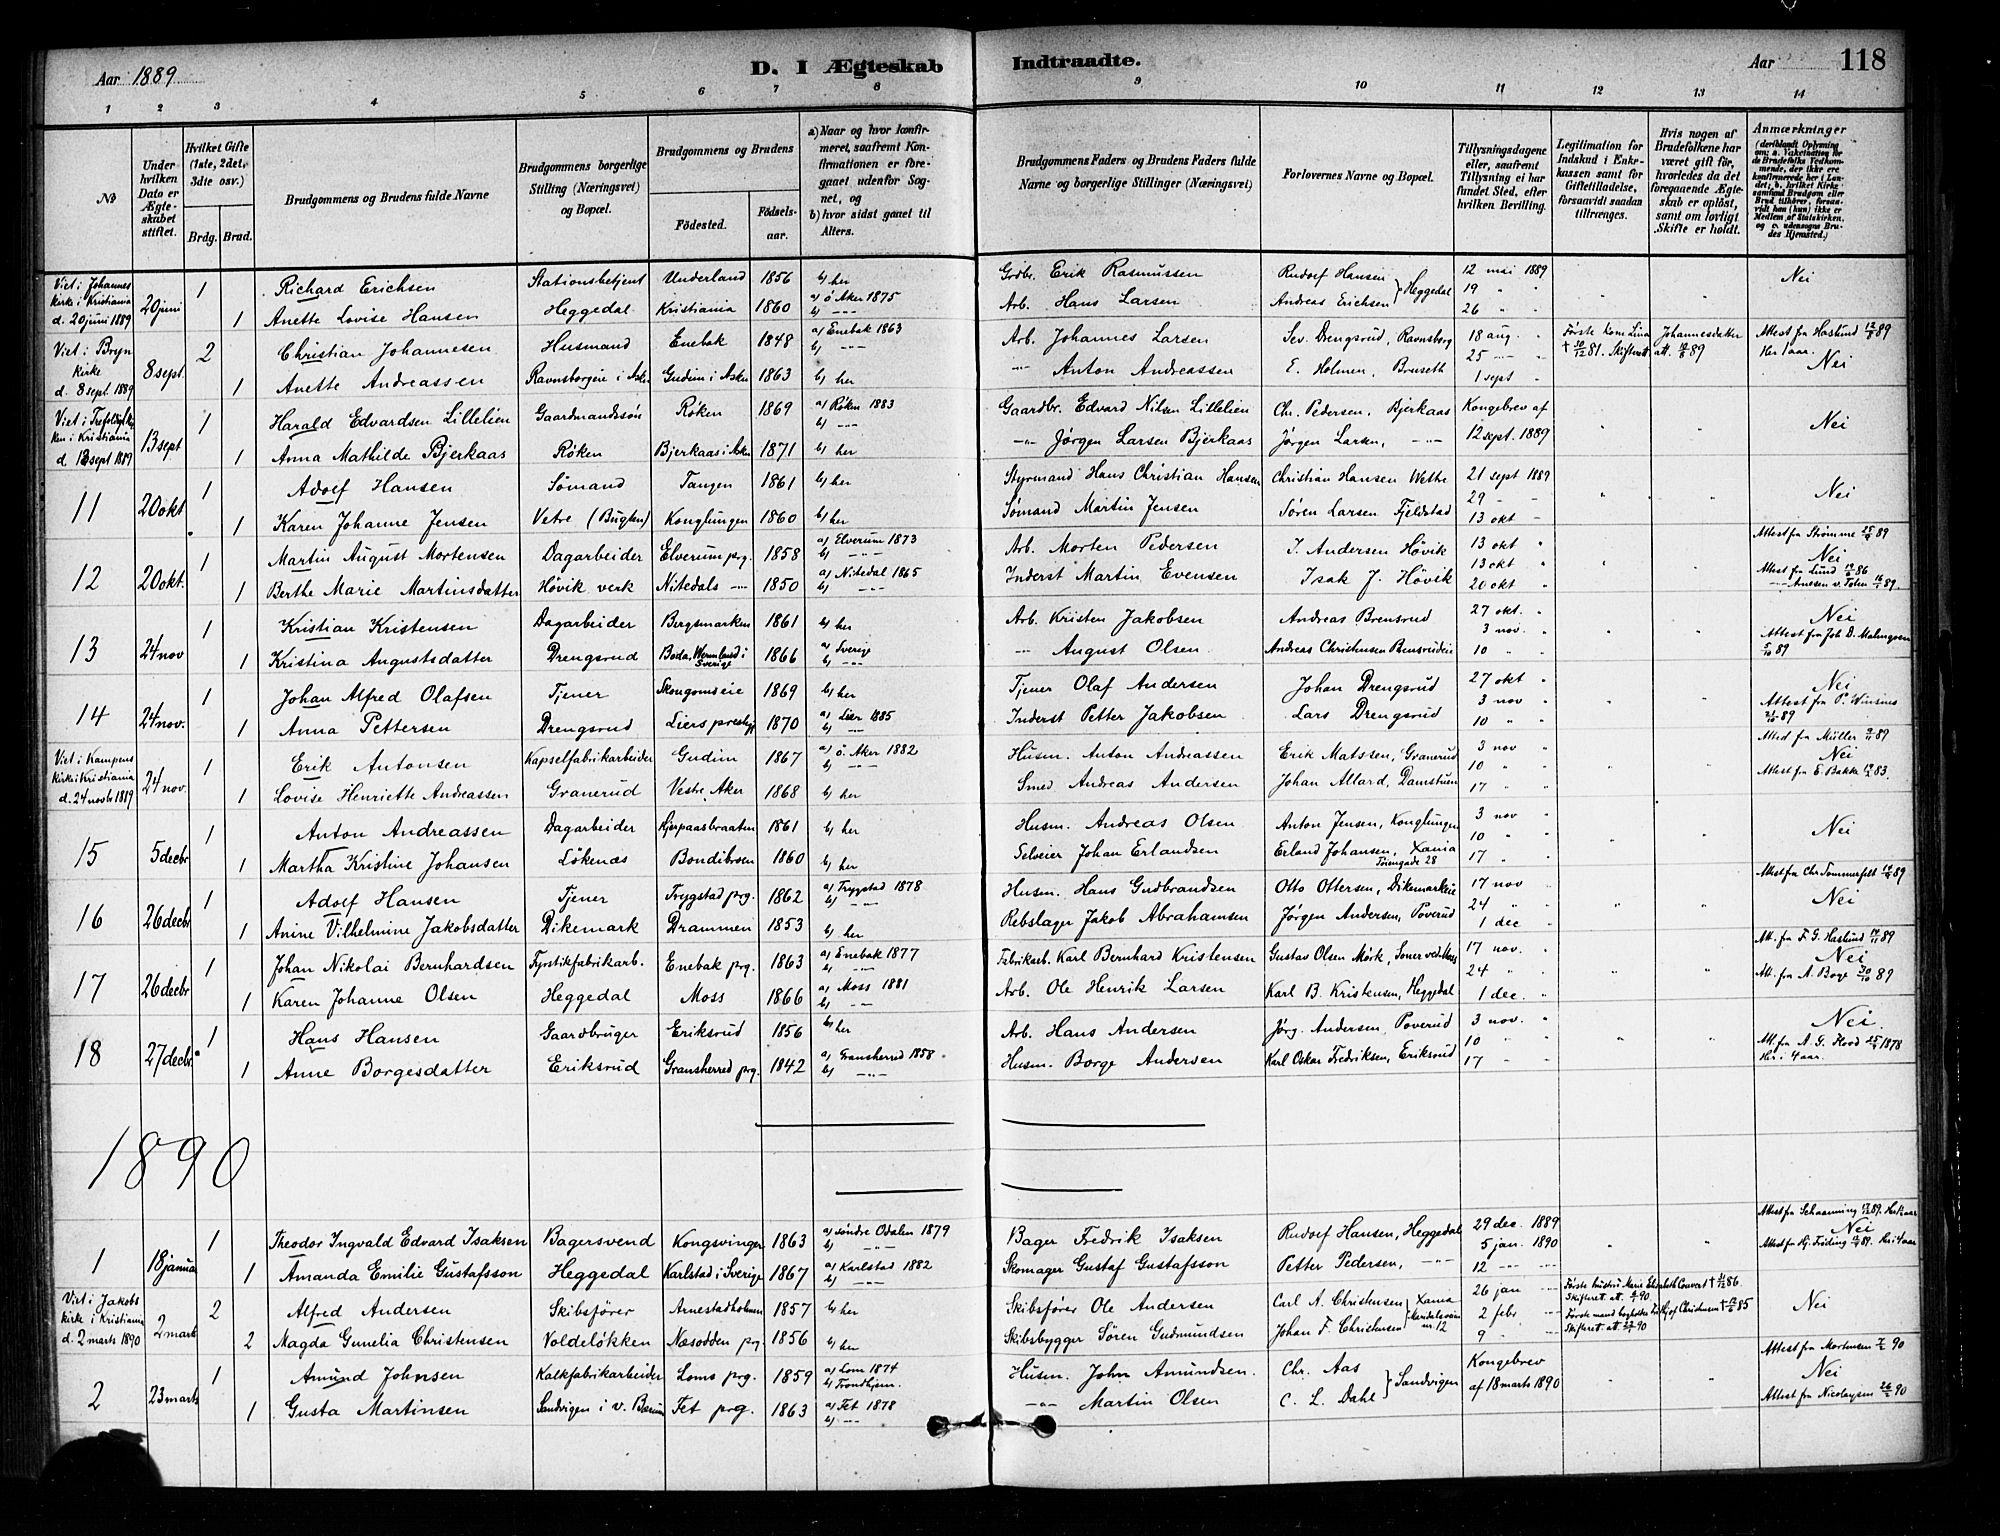 Aar 1889
D. I Ægteskab Indtraadte.
Aar
118
1 2 3 4 5 6 7 8 9 10 11 12 13 14
No
Under hvilken Dato er Ægteskabet stiftet.
Hvilket Gifte (1ste, 2det, 3dte osv.)
Brdg. Brud.
Brudgommens og Brudens fulde Navne
Brudgommens borgerlige Stilling (Næringsvei) og Bopæl.
Brudgommens og Brudens
Fødested.
Fødselsaar.
a) Naar og hvor konfirmeret, saafremt Konfirmationen er foregaaet udenfor Sognet, og
b) hvor sidst gaaet til Alters.
Brudgommens Faders og Brudens Faders fulde Navne og borgerlige Stillinger (Næringsvei)
Forlovernes Navne og Bopæl.
Tillysningsdagene eller, saafremt Tillysning ei har fundet Sted, efter hvilken Bevilling.
Legitimation for Indskud i Enkekassen samt for Giftetilladelse, forsaavidt saadan tiltrænges.
Hvis nogen af Brudefolkene har været gift før, hvorledes da det foregaaende Ægteskab er opløst, samt om lovligt Skifte er holdt.
Anmærkninger (deriblandt Oplysning om: a. Vakcination for de Brudefolks Vedkommende, der ikke ere konfirmerede her i Landet; b. hvilket Kirkesamfund Brudgom eller Brud tilhører, forsaavidt han (hun) ikke er Medlem af Statskirken, og c. udensogns Brudes Hjemsted.)
Viet i Johannes kirke i Kristiania d. 20 juni 1889 20 juni 1 Richard Erichsen Stationsbetjent Underland 1856 b) her Grdbr. Erik Rasmussen Rudolf Hansen 12 mai 1889 Nei
1 Anette Lovise Hansen Heggedal Kristiania 1860 a) ö. Aker 1875 b) -"- Arb. Hans Larsen Andreas Erichsen } Heggedal 19 " 26 "
Viet i Bryn Kirke d. 8 sept. 1889 8 sept. 2 Christian Johannesen Husmand Enebak 1848 a) Enebak 1863 b) -"- Arb. Johannes Larsen Sev. Drengsrud, Ravnsborg 18 aug. " Første kone Lina Johannesdatter † 10/12 81. Skifteatt. 12/8 89 Attest fra Haslund 12/8 89 Her 1 aar.
1 Anette Andreassen Ravnsborgeie i Asker Gudim i Asker 1863 b) her -"- Anton Andreassen E. Holmen, Bruseth 25 -"- 1 sept " Nei
Viet i Trefoldighedskirken i Kristiania d. 13 sept 1889 13 sept 1 Harald Edvardsen Lillelien Gaardmandssøn Røken 1869 a) Røken 1883 b) -"- Gaardbr. Edvard Nilsen Lillelien Chr. Pedersen, Bjerkaas Kongebrev af Nei
1 Anna Mathilde Bjerkaas Røken Bjerkaas i Asker 1871 b) her -"- Jørgen Larsen Bjerkaas Jørgen Larsen, -"- 12 sept. 1889
11 20 okt. 1 Adolf Hansen Sømand Tangen 1861 b) her Styrmand Hans Christian Hansen Christian Hansen Wethe 21 sept 1889 Nei
1 Karen Johanne Jensen Vetre (Bugten) Konglungen 1860 b) her Sømand Martin Jensen Søren Larsen Fjeldstad 29 - 13 okt -
12 20 okt. 1 Martin August Mortensen Dagarbeider Elverum prg. 1858 a) Elverum 1873 b) -"- Arb. Morten Pedersen I. Andersen Høvik 13 okt " Attest fra Strømme 25/9 89 Nei
1 Berthe Marie Martinsdatter Høvik verk Nitedals -"- 1850 a) Nitedal 1865 b) -"- Inderst Martin Evensen Isak J. Høvik 13 okt " 20 okt " Attest fra Lund 86 -"- Anesen v. Toten 89.
13 24 nov 1 Kristian Kristensen Dagarbeider Bergsmarken 1861 b) her Arb. Kristen Jakobsen Andreas Brensrud 27 okt. " Nei
1 Kristina Augustsdatter Drengsrud Boda, Wermland i Sverige 1866 a) Sverige b) -"- -"- August Olsen Andreas Christensen Bensrudeie 3 nov. " 10 " Attest fra Joh D. Malmgren 5/10 89
14 24 nov. 1 Johan Alfred Olafsen Tjener Skougomseie 1869 b) her Tjener Olaf Andersen Johan Drengsrud 27 okt " Nei
1 Anna Pettersen Drengsrud Liers prestegj. 1870 a) Lier 1885 b) -"- Inderst Petter Jakobsen Lars Drengsrud 3 nov " 10 " Attest fra P. Winsnes 21/10 89
Viet i Kampens kirke i Kristiania d. 24 novbr 1889 24 nov. 1 Erik Antonsen Kapselfabrikarbeider Gudim 1867 a) ö. Aker 1882 b) -"- Husm. Anton Andreassen Erik Matssen, Granerud 3 nov " Attest fra Müller 9/11 89 Nei
1 Lovise Henriette Andreassen Granerud Vestre Aker 1868 b) her Smed Andreas Andersen Johan Allard, Damstuen 10 " 17 " Attest fra E. Bakke 83.
15 5 decbr 1 Anton Andreassen Dagarbeider Kjerpaasbraaten 1861 b) her Husm. Andreas Olsen Anton Jensen, Konglungen 3 nov " Nei
1 Martha Kristine Johansen Løkenæs Bondibroen 1860 b) her Selveier Johan Erlandsen Erland Johansen, Xania Töiengade 28 10 " 17 "
16 26 decbr 1 Adolf Hansen Tjener Trygstad prg. 1862 a) Trygstad 1878 b) -"- Husm. Hans Gudbrandsen Otto Ottersen, Dikemarkeie 17 nov " Attest fra Chr Sommerfelt 89 Nei
1 Anine Vilhelmine Jakobsdatter Dikemark Drammen 1853 b) her Rebslager Jakob Abrahamsen Jørgen Andersen, Poverud 24 " 1 dec "
17 26 decbr 1 Johan Nikolai Bernhardsen Fyrstikfabrikarb. Enebak prg. 1863 a) Enebak 1877 b) -"- Fabrikarb. Karl Bernhard Kristensen Gustav Olsen Mørk, Soner ved Moss 17 nov. " Att. fra F. G. Haslund 89 Nei
1 Karen Johanne Olsen Heggedal Moss 1866 a) Moss 1881 b) -"- Arb. Ole Henrik Larsen Karl B. Kristensen, Heggedal 24 " 1 dec. " Att. fra A. Boye 30/10 89
18 27 decbr. 1 Hans Hansen Gaardbruger Eriksrud 1856 b) her Arb. Hans Andersen Jørg. Andersen, Poverud 3 nov. " Nei
1 Anne Borgesdatter Eriksrud Gransherred prg. 1842 a) Gransherred 1858 b) -"- Husm. Borge Andersen Karl Oskar Fredriksen, Eriksrud 10 " 17 " Att. fra A. G. Hood 1878 Her i 4 aar.
1890
1 18 januar 1 Theodor Ingvald Edvard Isaksen Bagersvend Kongsvinger 1863 a) Søndre Odalen 1879 b) -"- Bager Fredrik Isaksen Rudolf Hansen, Heggedal 29 dec. 1889 Attest fra Schaanning 89. Nei
1 Amanda Emilie Gustafsson Heggedal Karlstad i Sverige 1867 a) Karlstad 1882 b) -"- Skomager Gustaf Gustafsson Petter Pedersen, -"- 5 jan. 1890 12 -"- Attest fra Hj. Frøding 89. Her i 4 aar
Viet i Jakobs kirke i Kristiania d. 2 marts 1890 2 marts 2 Alfred Andersen Skibsfører Arnestadholmen 1857 b) her Skibsfører Ole Andersen Carl A. Christensen 26 jan -"- Første hustru Marie Elisabeth Couvert † 86 Skifteret. att. 90 Nei
2 Magda Gunelia Christensen Voldeløkken Næsodden prg. 1856 b) her Skibsbygger Søren Gudmundsen Johan F. Christensen } Xania nr. 12 2 febr -"- 9 " Første mand Christensen † 85 Skifteret att. 90
2 23 marts 1 Amund Johnsen Kalkfabrikarbeider Loms prg. 1859 a) Lom 1874 b) Trondhjem. Husm. John Amundsen Chr. Aas Kongebrev Attest fra Mortensen 7/2 90 Nei
1 Gusta Martinsen Sandvigen i v. Bærum Fet prg. 1863 a) Fet 1878 b) -"- -"- Martin Olsen C. L. Dahl } Sandvigen af 18 marts 1890 Attest fra Nicolaysen 90